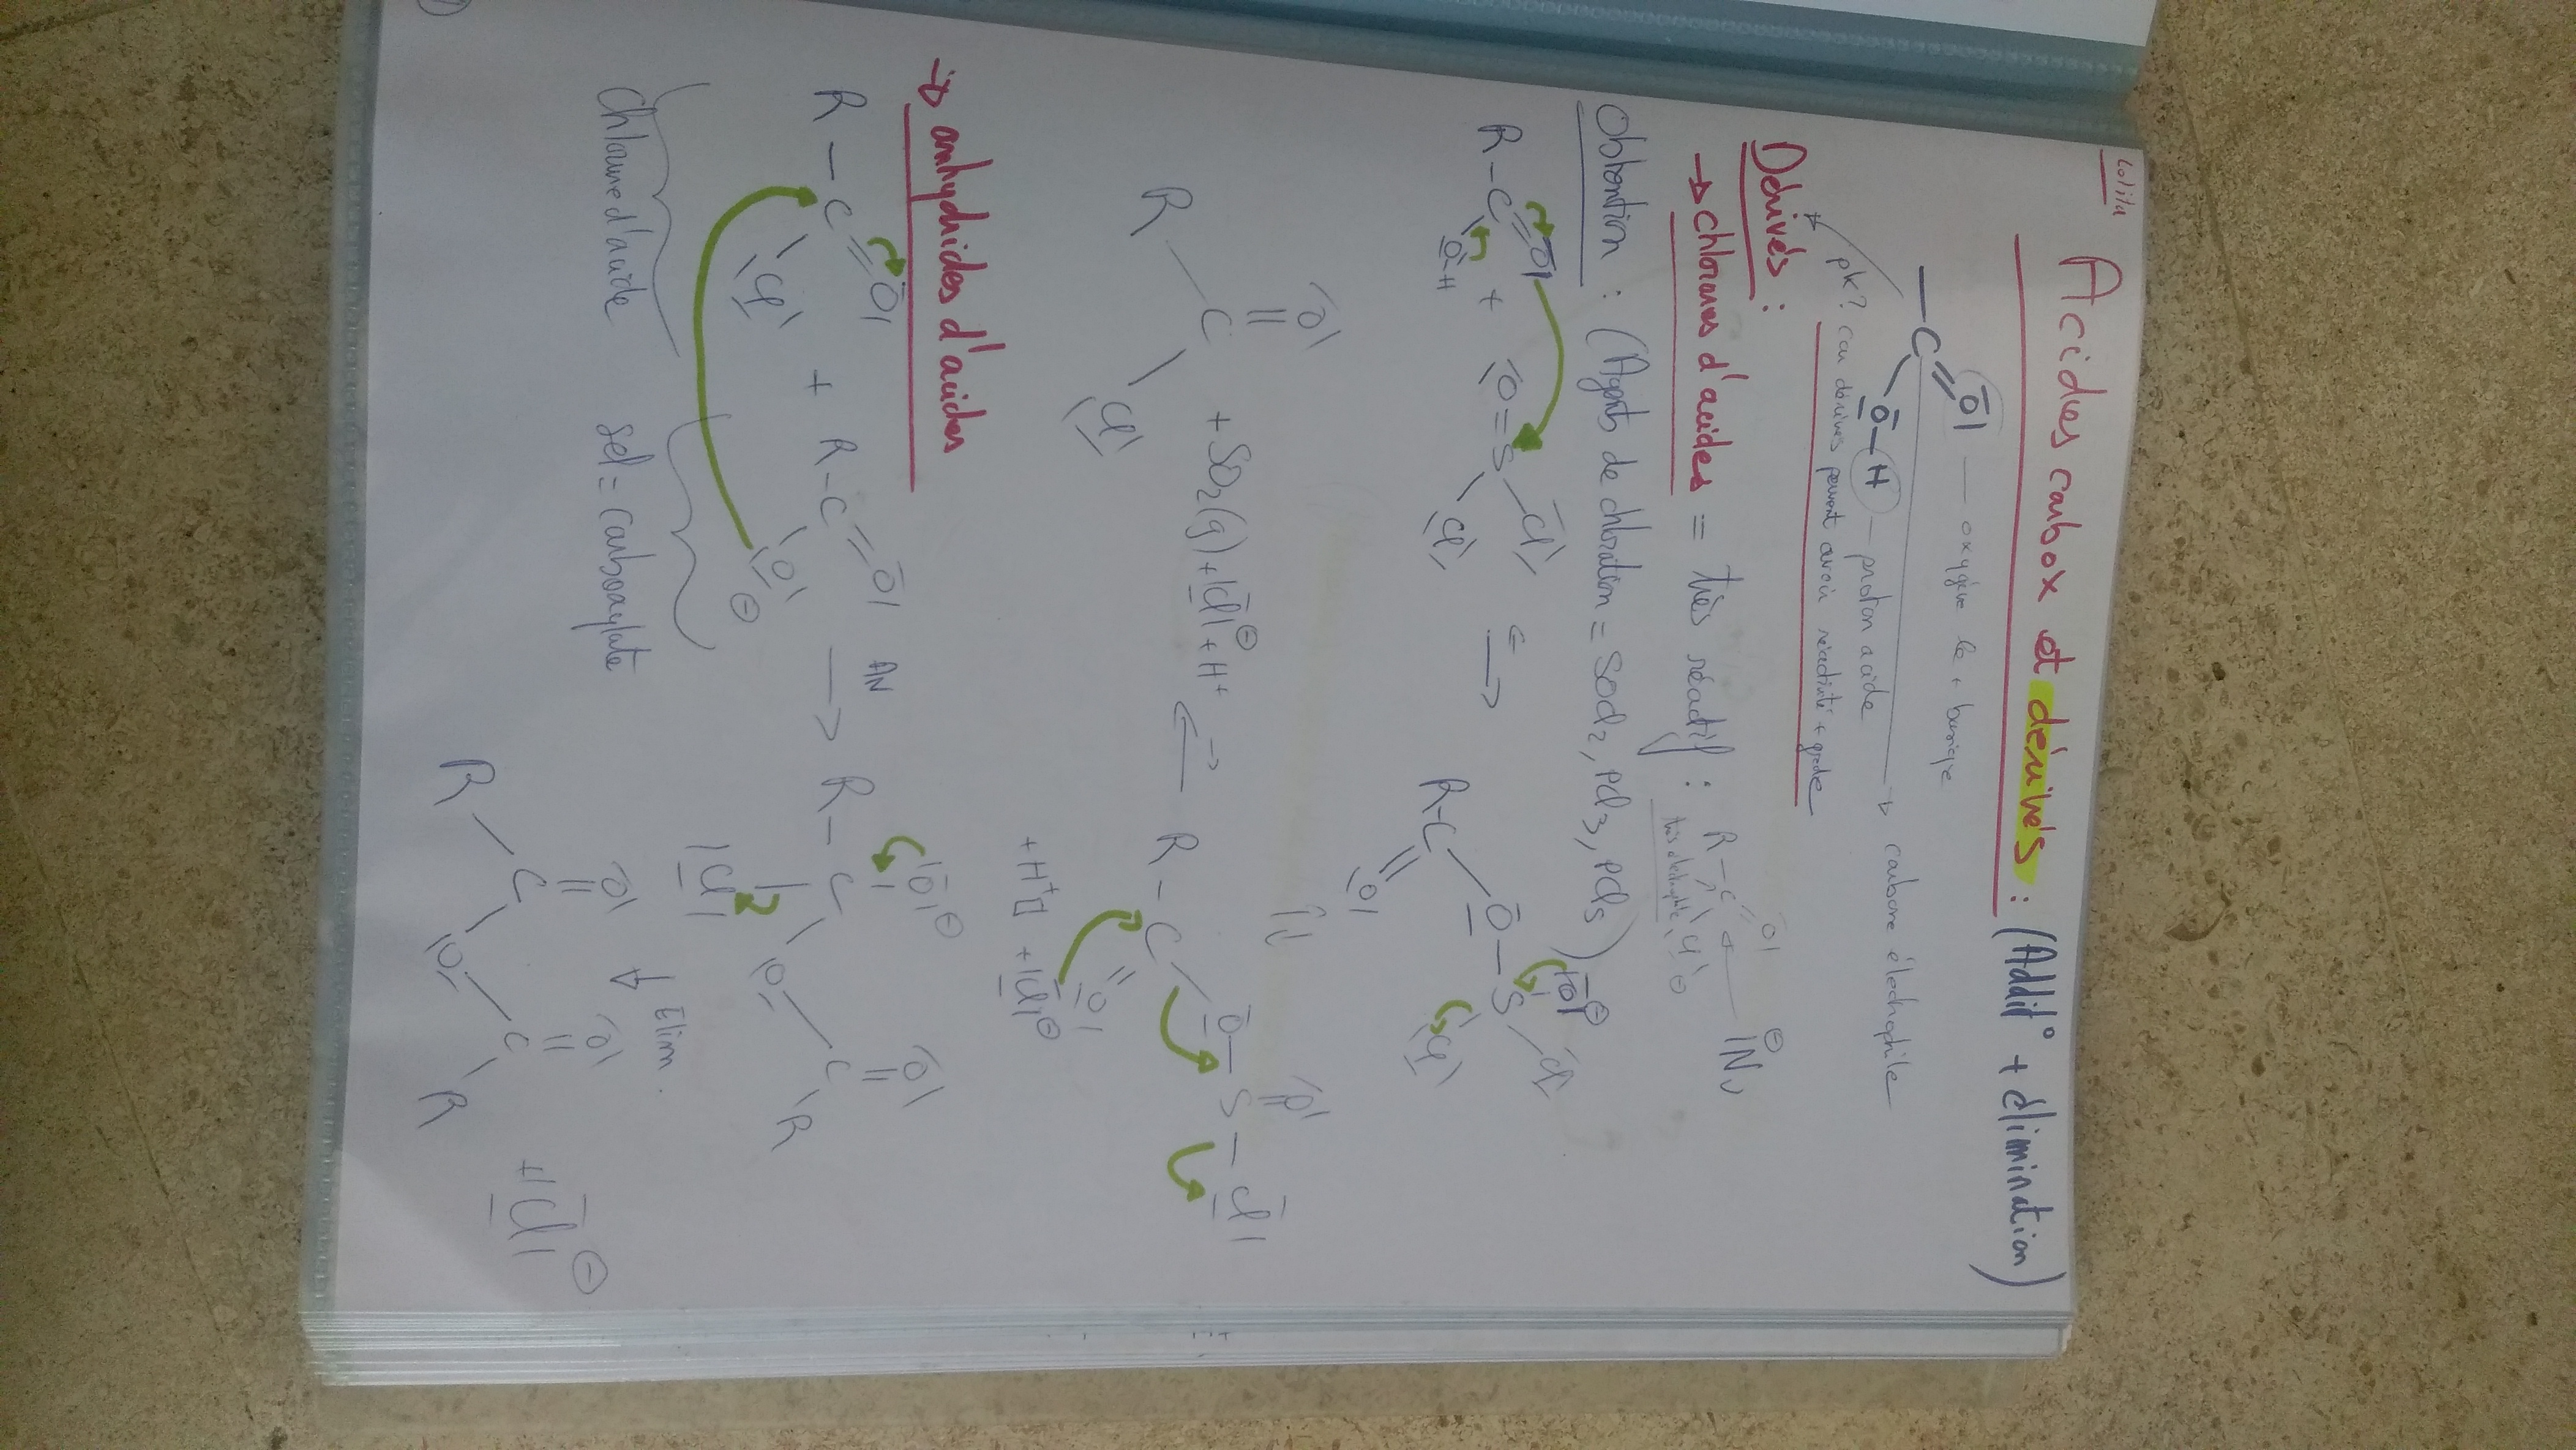 Lolita
Acides carbox et dérivés : (Addit° + élimination)
— C = O — oxygène le + basique
O — H — proton acide
→ carbone électrophile
pk? car dérivés peuvent avoir réactivité + grande
Dérivés :
→ chlorures d'acides = très réactif : R – C = O Cl ⊖ |Nu ⊖
très électrophile
Obtention : (Agents de chloration = SOCl2, PCl3, PCl5)
R – C = O O – H + O = S Cl Cl ⇌ R – C = O O – S O ⊖ Cl Cl
R C = O Cl + SO2(g) + Cl ⊖ + H+ ⇌ R – C = O O – S = O – Cl
+ H+ + Cl ⊖
→ anhydrides d'acides
R – C = O Cl + R – C = O O ⊖ AN → R – C O ⊖ Cl O – C = O R
Chlorure d'acide sel = carboxylate
↓ Elim.
R C = O O C = O R + Cl ⊖